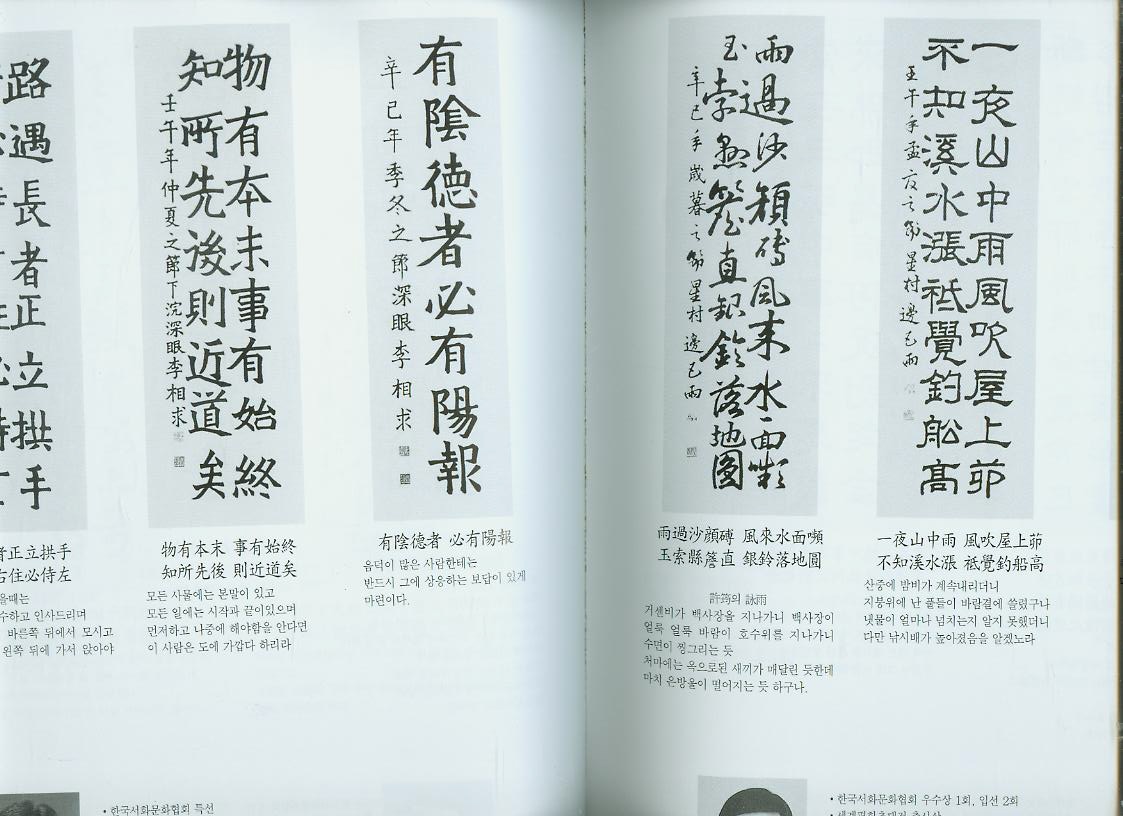 路遇長者正立拱手
物有本末事有始終
知所先後則近道矣
壬午年仲夏之節下浣深眼李相求
有陰德者必有陽報
辛巳年季冬之節深眼李相求
雨過沙顔磚風來水面嚬
玉索懸簷直銀鈴落地圓
辛巳年歲暮之節星村邊已雨
一夜山中雨風吹屋上茆
不知溪水漲祗覺釣船高
壬午年孟夏之節星村邊已雨
者正立拱手
右住必侍左
을때는
수하고 인사드리며
바른쪽 뒤에서 모시고
왼쪽 뒤에 가서 앉아야
物有本末 事有始終
知所先後 則近道矣
모든 사물에는 본말이 있고
모든 일에는 시작과 끝이있으며
먼저하고 나중에 해야함을 안다면
이 사람은 도에 가깝다 하리라
有陰德者 必有陽報
음덕이 많은 사람한테는
반드시 그에 상응하는 보답이 있게
마련이다.
雨過沙顔磚 風來水面嚬
玉索縣簷直 銀鈴落地圓
許筠의 詠雨
거센비가 백사장을 지나가니 백사장이
얼룩 얼룩 바람이 호수위를 지나가니
수면이 찡그리는 듯
처마에는 옥으로된 새끼가 매달린 듯한데
마치 은방울이 떨어지는 듯 하구나.
一夜山中雨 風吹屋上茆
不知溪水漲 祗覺釣船高
산중에 밤비가 계속내리더니
지붕위에 난 풀들이 바람결에 쓸렸구나
냇물이 얼마나 넘치는지 알지 못했더니
다만 낚시배가 높아졌음을 알겠노라
• 한국서화문화협회 특선
• 한국서화문화협회 우수상 1회, 입선 2회